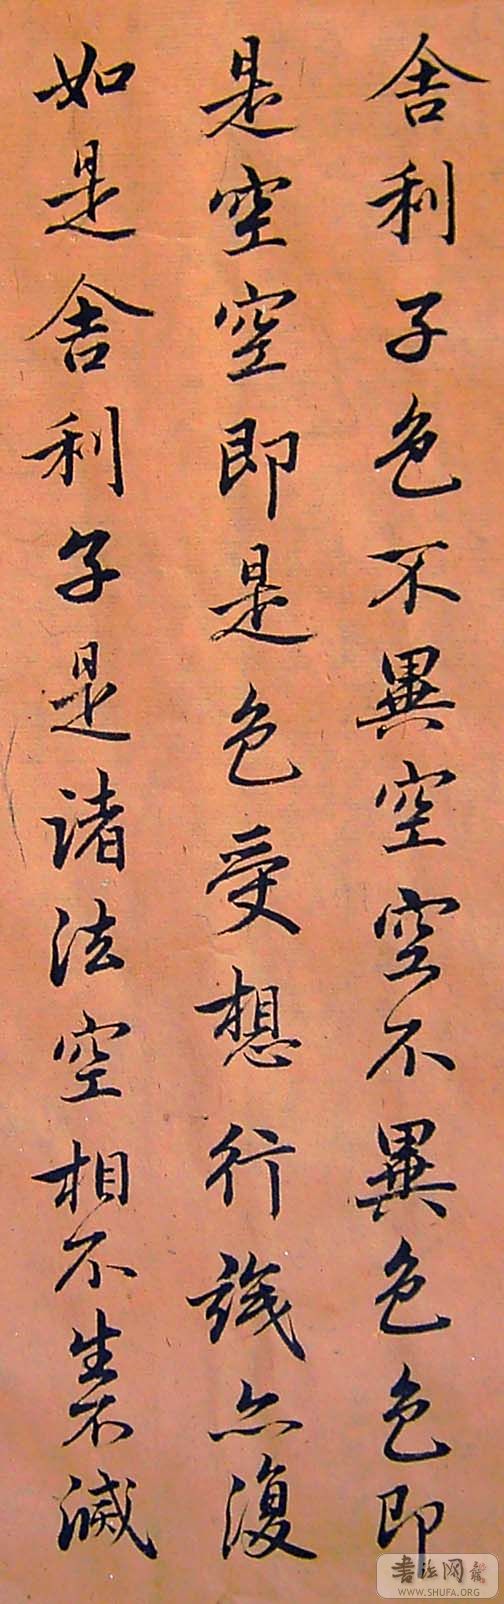 舍利子色不異空空不異色色即
是空空即是色受想行識亦復
如是舍利子是諸法空相不生不滅
书法网
WWW.SHUFA.ORG